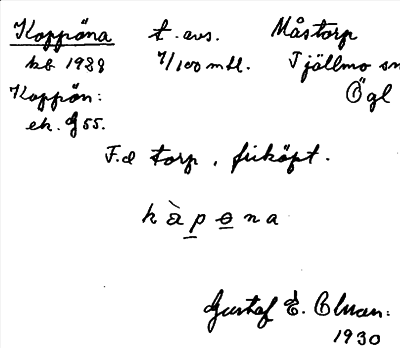 Koppöna t. avs. Måstorp
kb 1928 7/100 mtl. Tjällmo sn
Koppön: Ögl
ek. G 55.
F.d torp, friköpt.
kàpɵna
Gustaf E. Olman:
1930